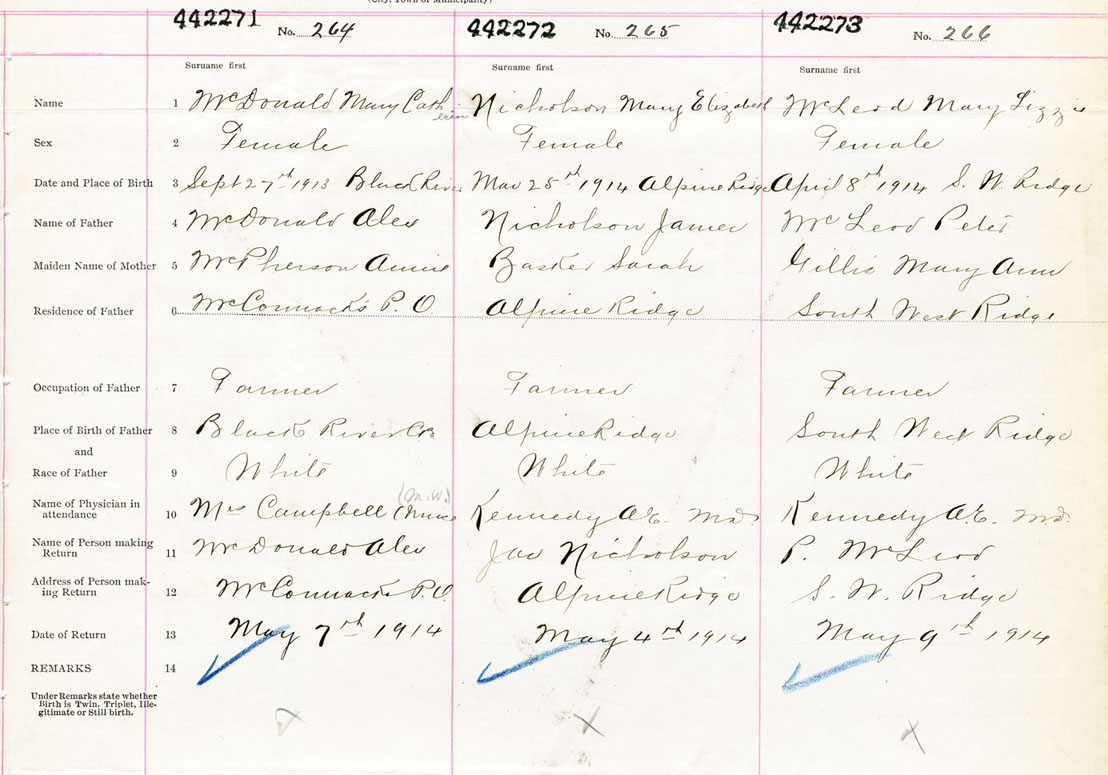 (City, Town or Municipality)
442271 No. 264 442272 No. 265 442273 No. 266
Surname first Surname first Surname first
Name 1 McDonald Mary Cath erin Nicholson Mary Elizabeth McLeod Mary Lizzie
Sex 2 Female Female Female
Date and Place of Birth 3 Sept 27th 1913 Black River Mar 25th 1914 Alpine Ridge April 8th 1914 S. W. Ridge
Name of Father 4 McDonald Alex Nicholson James McLeod Peter
Maiden Name of Mother 5 McPherson Annie Basker Sarah Gillis Mary Ann
Residence of Father 6 McCormack's P. O. Alpine Ridge South West Ridge
Occupation of Father 7 Farmer Farmer Farmer
Place of Birth of Father 8 Black River Alpine Ridge South West Ridge
and
Race of Father 9 White White White
(M.W.)
Name of Physician in
attendance 10 Mrs Campbell (Nurse Kennedy A.E. Md. Kennedy A.E. Md.
Name of Person making
Return 11 McDonald Alex Jas Nicholson P. McLeod
Address of Person mak-
ing Return 12 McCormacks P.O. Alpine Ridge S. W. Ridge
Date of Return 13 May 7th 1914 May 4th 1914 May 9th 1914
REMARKS 14
Under Remarks state whether
Birth is Twin, Triplet, Ille-
gitimate or Still birth.
X X X